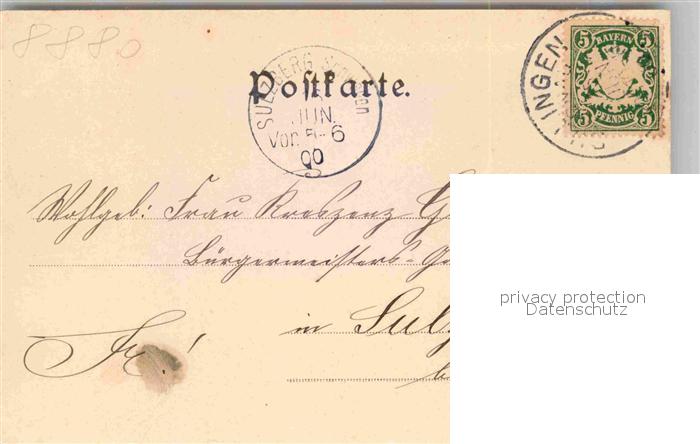 8880
Postkarte.
SULZBERG
JUN.
Vor. 5-6
00
INGEN
5 BAYERN 5
5 PFENNIG 5
Wohlgeb: Frau Kreszenz
Bürgermeisters-
in Sulz
Fr!
privacy protection
Datenschutz